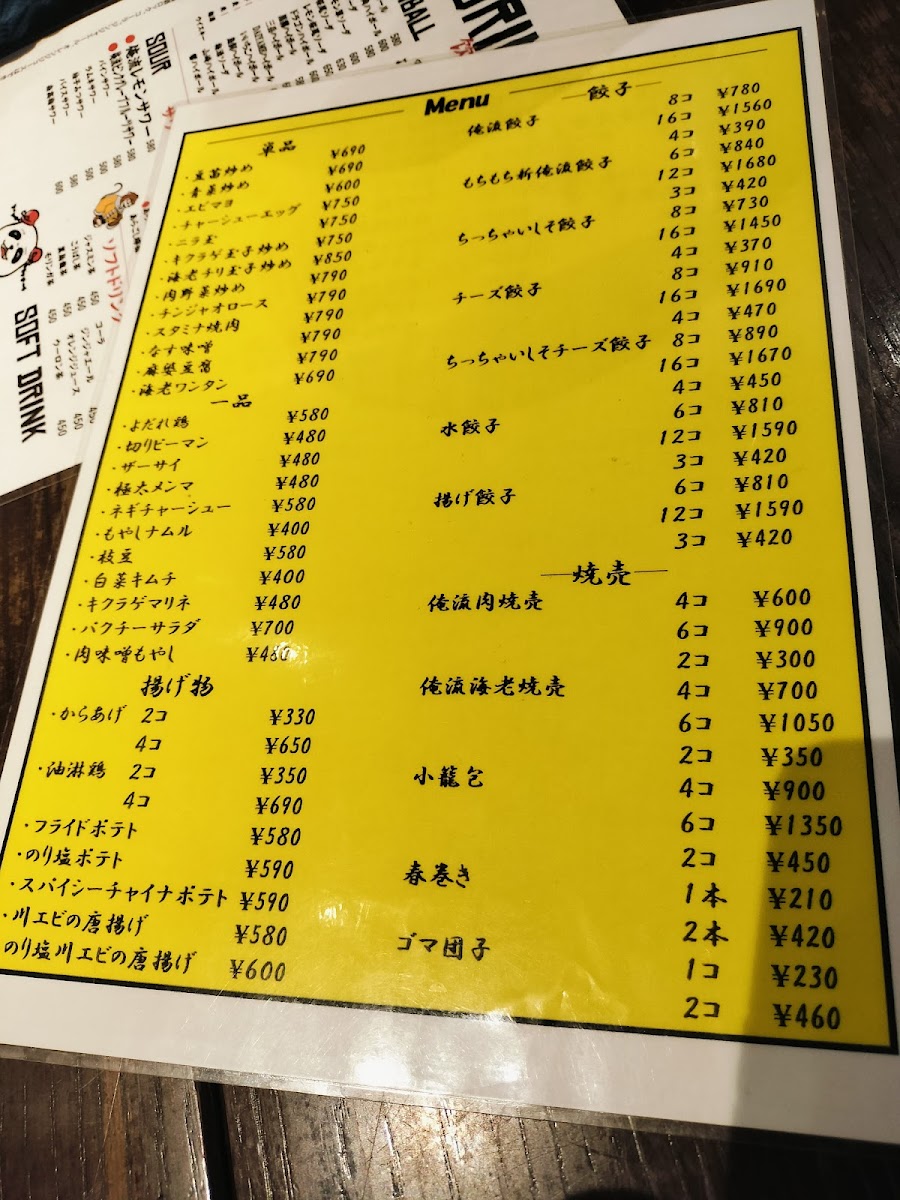 Menu
単品
・豆苗炒め ¥690
・青菜炒め ¥690
・エビマヨ ¥600
・チャーシューエッグ ¥750
・ニラ玉 ¥750
・キクラゲ玉子炒め ¥750
・海老チリ玉子炒め ¥850
・肉野菜炒め ¥790
・チンジャオロース ¥790
・スタミナ焼肉 ¥790
・なす味噌 ¥790
・麻婆豆腐 ¥790
・海老ワンタン ¥690
一品
・よだれ鶏 ¥580
・切りピーマン ¥480
・ザーサイ ¥480
・極太メンマ ¥480
・ネギチャーシュー ¥580
・もやしナムル ¥400
・枝豆 ¥580
・白菜キムチ ¥400
・キクラゲマリネ ¥480
・パクチーサラダ ¥700
・肉味噌もやし ¥480
揚げ物
・からあげ 2コ ¥330
4コ ¥650
・油淋鶏 2コ ¥350
4コ ¥690
・フライドポテト ¥580
・のり塩ポテト ¥590
・スパイシーチャイナポテト ¥590
・川エビの唐揚げ ¥580
のり塩川エビの唐揚げ ¥600
餃子
俺流餃子 8コ ¥780
16コ ¥1560
4コ ¥390
もちもち新俺流餃子 6コ ¥840
12コ ¥1680
3コ ¥420
ちっちゃいしそ餃子 8コ ¥730
16コ ¥1450
4コ ¥370
チーズ餃子 8コ ¥910
16コ ¥1690
4コ ¥470
ちっちゃいしそチーズ餃子 8コ ¥890
16コ ¥1670
4コ ¥450
水餃子 6コ ¥810
12コ ¥1590
3コ ¥420
揚げ餃子 6コ ¥810
12コ ¥1590
3コ ¥420
焼売
俺流肉焼売 4コ ¥600
6コ ¥900
2コ ¥300
俺流海老焼売 4コ ¥700
6コ ¥1050
2コ ¥350
小籠包 4コ ¥900
6コ ¥1350
2コ ¥450
春巻き 1本 ¥210
2本 ¥420
ゴマ団子 1コ ¥230
2コ ¥460
SOUR
俺流レモンサワー 580
ソフトドリンク
SOFT DRINK
ジャスミン茶 450
コーラ 450
ジンジャエール 450
オレンジジュース 450
ウーロン茶 450